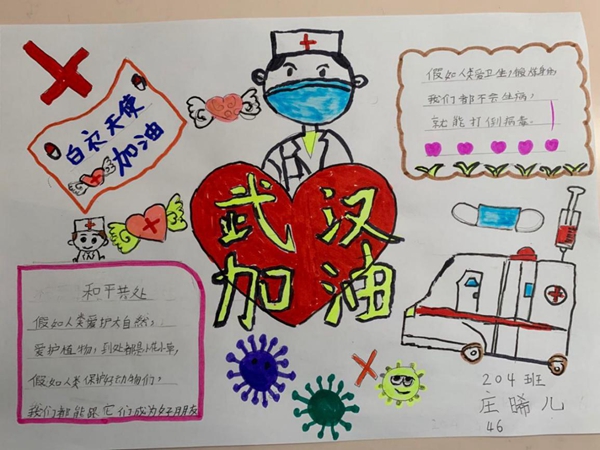 白衣天使
加油
假如人类爱卫生,锻炼身体,
我们都不会生病,
就能打倒病毒。
武汉
加油
和平共处
假如人类爱护大自然,
爱护植物,到处都是花小草,
假如人类保护动物们,
我们都能跟它们成为好朋友
204班
庄晞儿
46